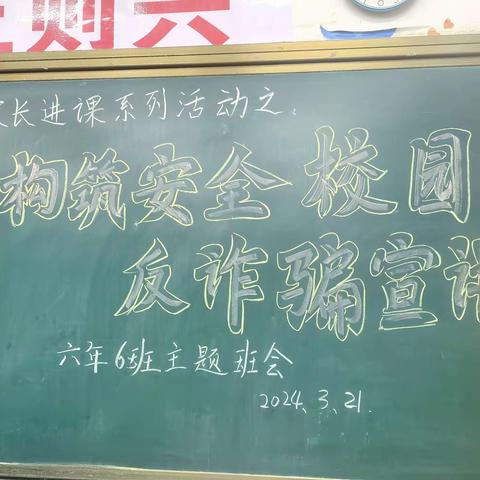 则六
长进课系列活动之:
构筑安全校园
反诈骗宣讲
六年6班主题班会
2024、3、21.